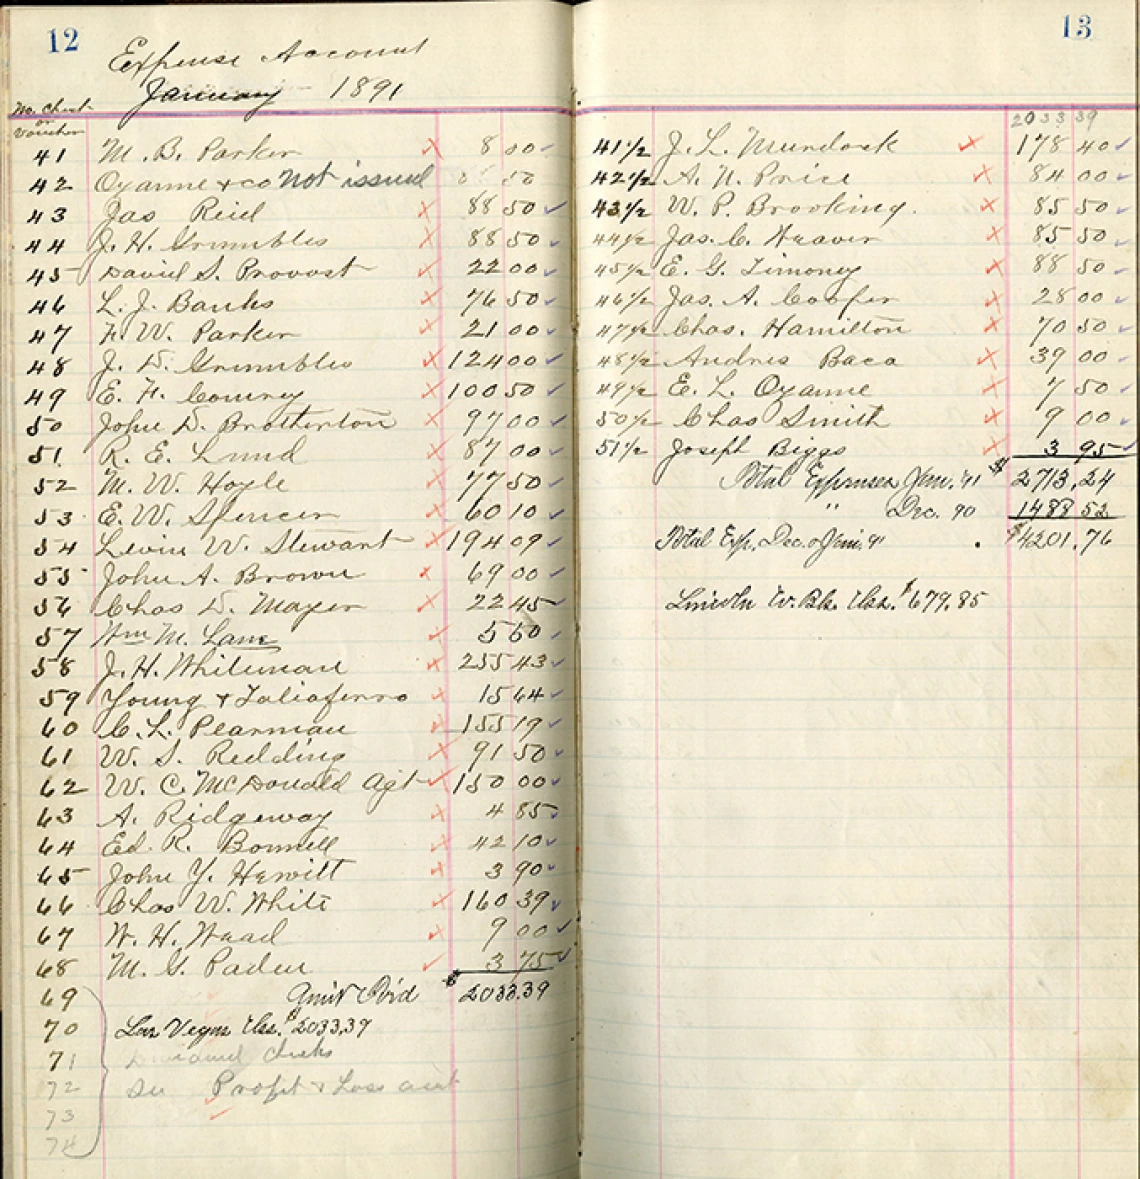 12
Expense Account
January 1891
No. Check
or
Voucher
41 M. B. Parker x 8 00
42 Ozanne & co Not issued 50
43 Jas Reid x 88 50
44 J. H. Grumbles x 88 50
45 David S. Provost x 22 00
46 L. J. Banks x 76 50
47 F. W. Parker x 21 00
48 J. D. Grumbles x 124 00
49 E. F. Coursey x 100 50
50 John D. Brotherton x 97 00
51 R. E. Lund x 87 00
52 M. W. Hoyle x 77 50
53 E. W. Spencer x 60 10
54 Levin W. Stewart x 194 09
55 John A. Brown x 69 00
56 Chas D. Mayer x 22 45
57 Wm M. Lane x 5 50
58 J. H. Whiteman x 255 43
59 Young & Taliaferro x 15 64
60 C. L. Pearman x 155 19
61 W. S. Redding x 91 50
62 W. C. McDonald Agt x 150 00
63 A. Ridgeway x 4 85
64 Ed. R. Bonnell x 42 10
65 John Y. Hewitt x 3 90
66 Chas W. White x 160 39
67 W. H. Weed x 9 00
68 M. G. Paden 3 75
69 Am't Fw'd $2033.39
70 Las Vegas Cks. $2033.39
71 Dividend checks
72 See Profit & Loss acct
73
74
13
2033 39
41 1/2 J. L. Murdock x 178 40
42 1/2 A. N. Price x 84 00
43 1/2 W. P. Brooking. x 85 50
44 1/2 Jas. C. Heaver x 85 50
45 1/2 E. G. Timoney x 88 50
46 1/2 Jas. A. Cooper x 28 00
47 1/2 Chas. Hamilton x 70 50
48 1/2 Andres Baca x 39 00
49 1/2 E. L. Ozanne x 7 50
50 1/2 Chas Smith x 9 00
51 1/2 Joseph Biggs x 3 95
Total Expenses Jan. '91 $2713.24
" Dec. 90 1488 52
Total Exp. Dec. & Jan. 91 $4201.76
Lincoln Co. Bk. Cks. $679.85